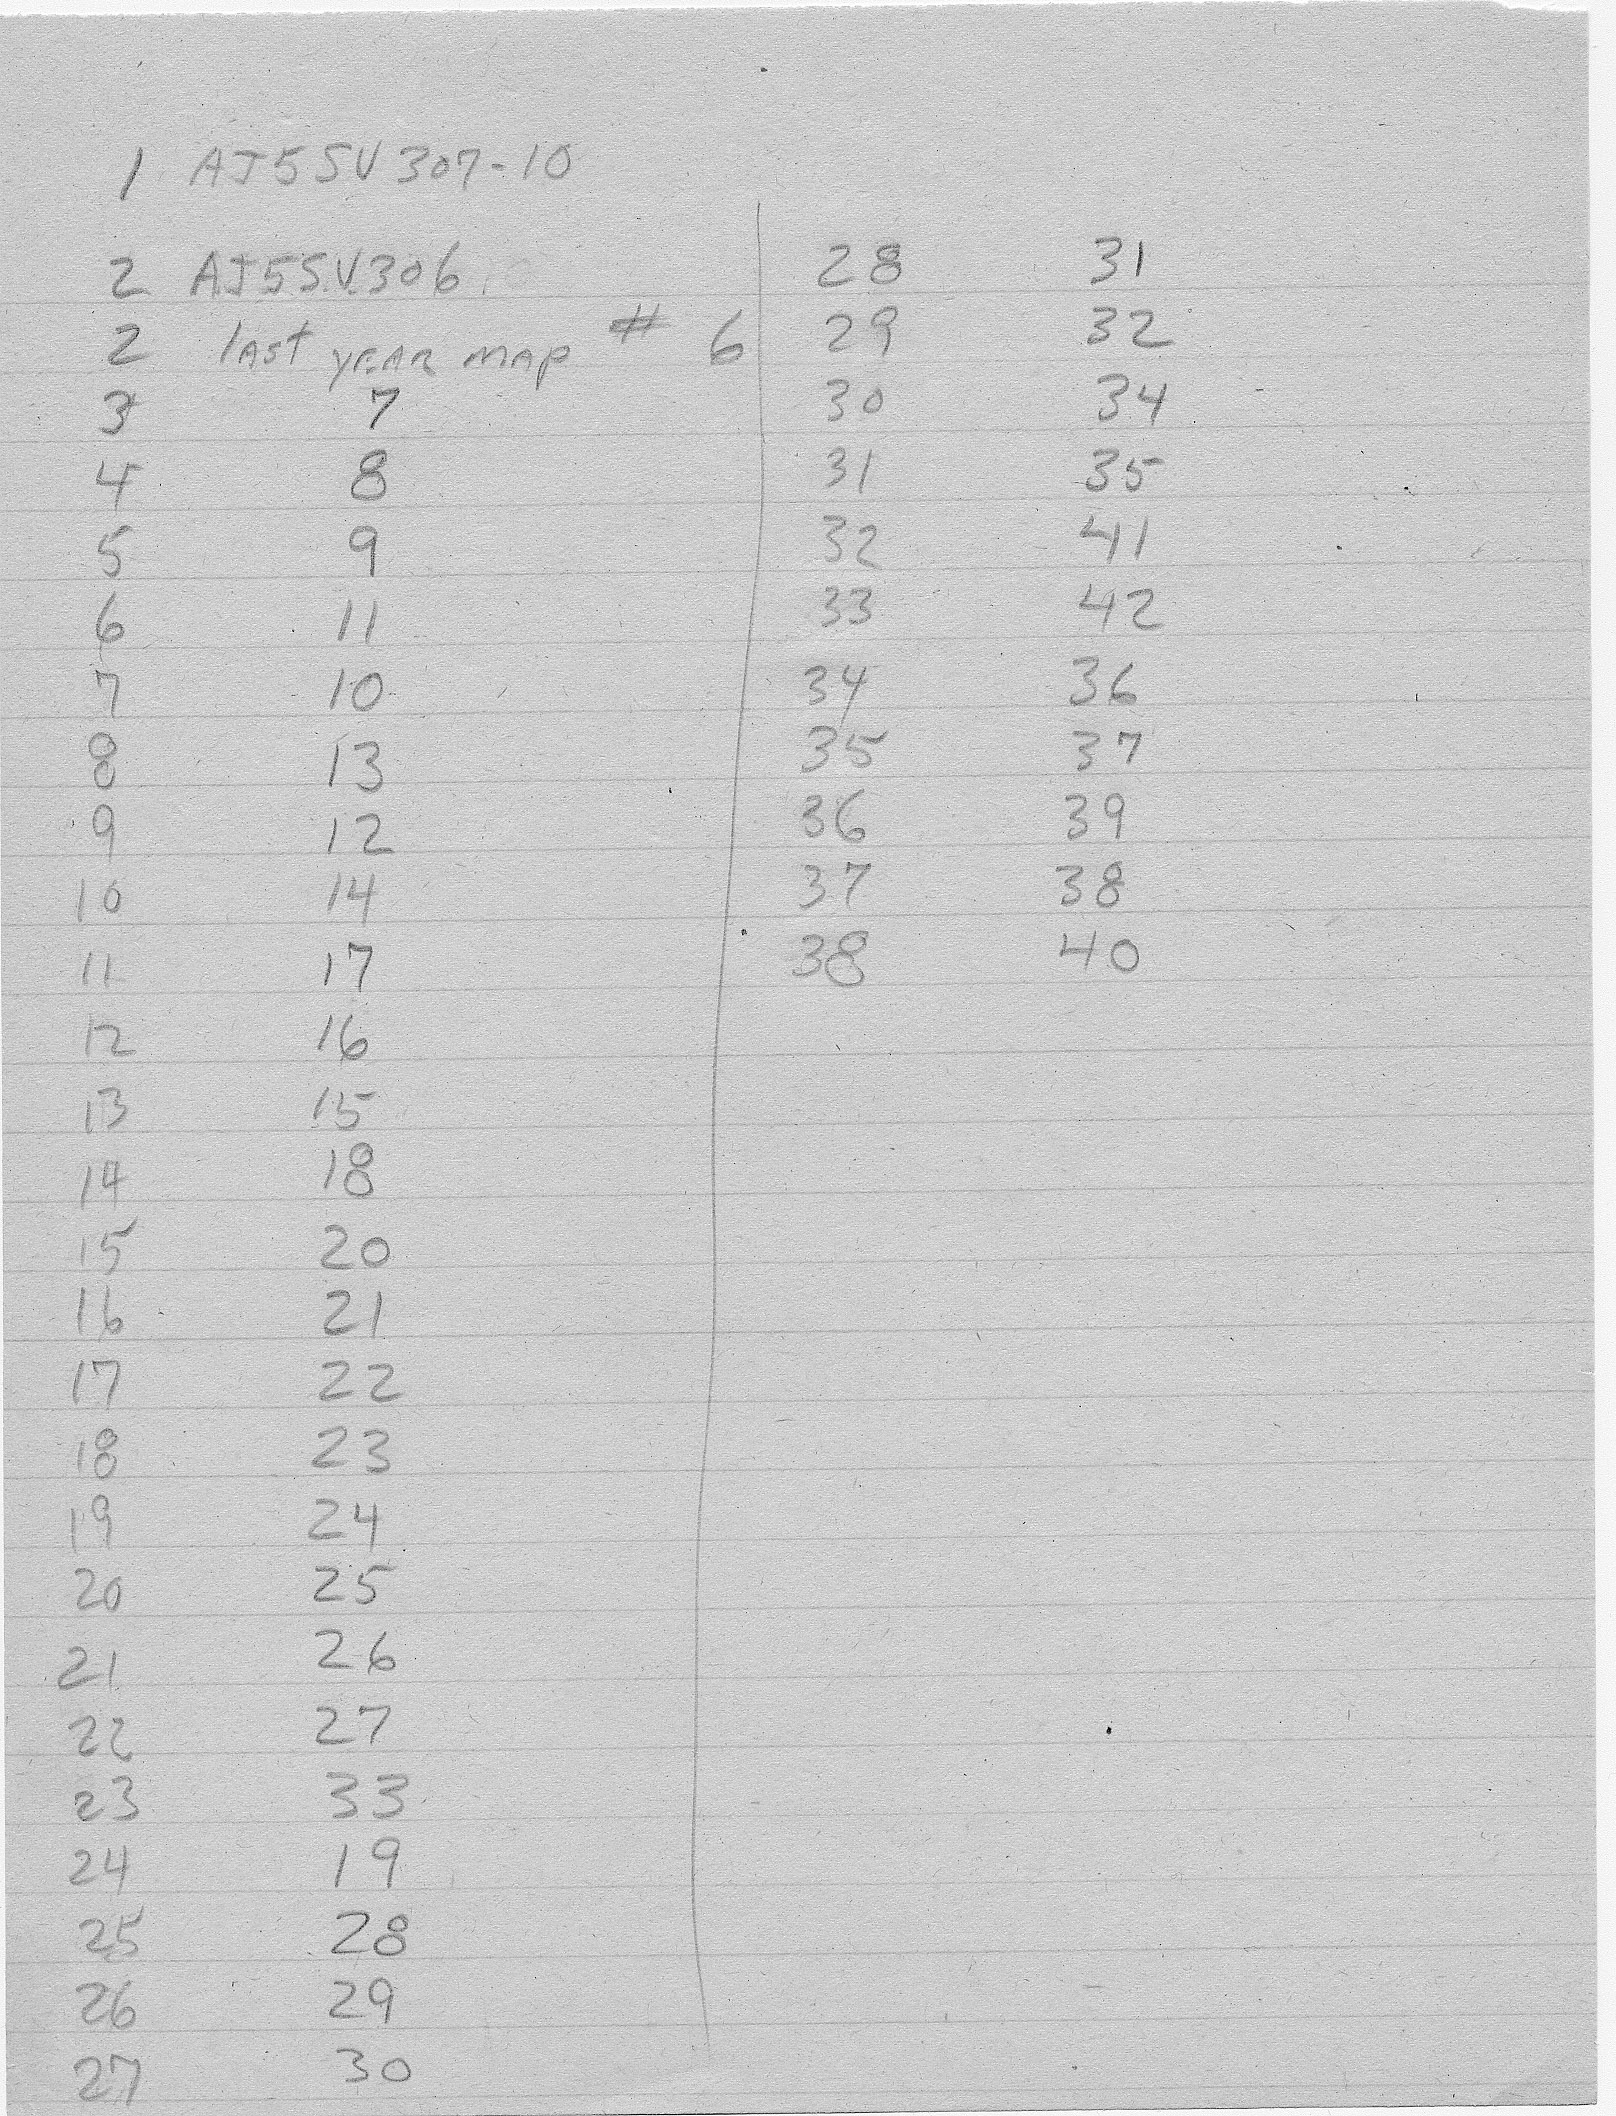 1 AJ5SV307-10
2 AJ5SV306
2 last year map # 6
3 7
4 8
5 9
6 11
7 10
8 13
9 12
10 14
11 17
12 16
13 15
14 18
15 20
16 21
17 22
18 23
19 24
20 25
21 26
22 27
23 33
24 19
25 28
26 29
27 30
28 31
29 32
30 34
31 35
32 41
33 42
34 36
35 37
36 39
37 38
38 40